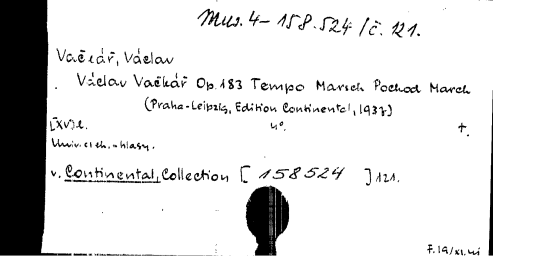 Mus. 4 - 158.524 / č. 121.
Vačkář, Václav
Václav Vačkář Op. 183 Tempo Marsch Pochod March
(Praha-Leipzig, Edition Continental, 1937)
[XV] l. 4°. †.
hlasy.
v. Continental, Collection [158524] 121.
F. 19/XI.